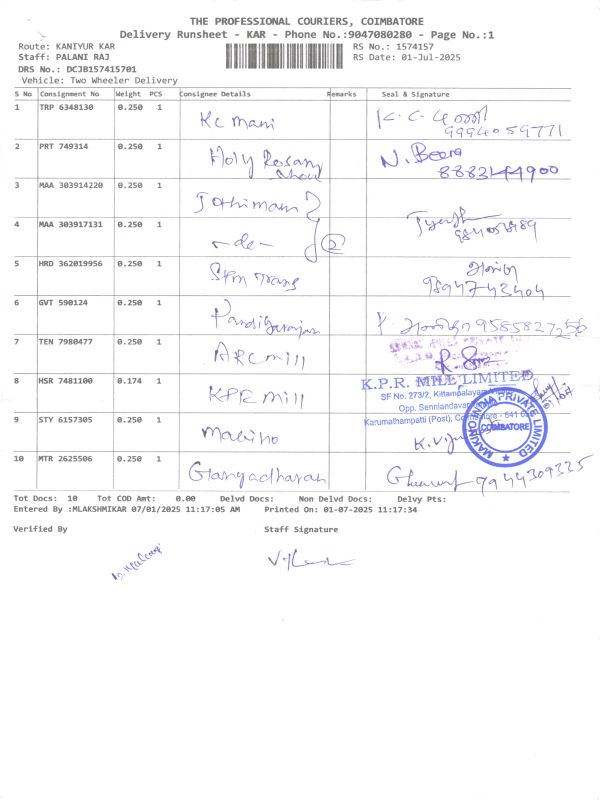 THE PROFESSIONAL COURIERS, COIMBATORE
Delivery Runsheet - KAR - Phone No.:9047080280 - Page No.:1
Route: KANIYUR KAR RS No.: 1574157
Staff: PALANI RAJ RS Date: 01-Jul-2025
DRS No.: DCJB157415701
Vehicle: Two Wheeler Delivery
S No Consignment No Weight PCS Consignee Details Remarks Seal & Signature
1 TRP 6348130 0.250 1 Kc mani K.C.
9994059771
2 PRT 749314 0.250 1 Holy Rosary N. Beena
8883144900
3 MAA 303914220 0.250 1 Jothimani
4 MAA 303917131 0.250 1 -do- 2
5 HRD 362019956 0.250 1 SPM Trans
9894743404
6 GVT 590124 0.250 1 Pandiyarajan
7 TEN 7980477 0.250 1 ARC mill
8 HSR 7481100 0.174 1 KPR mill
K.P.R. MILL LIMITED
SF No. 273/2, Kittampalayam
Opp. Senniandavar
Karumathampatti (Post), Coimbatore - 641
9 STY 6157305 0.250 1 Makino K. Viju
MAKINO INDIA PRIVATE LIMITED
COIMBATORE
10 MTR 2625506 0.250 1 Gangadharan 7944309325
Tot Docs: 10 Tot COD Amt: 0.00 Delvd Docs: Non Delvd Docs: Delvy Pts:
Entered By :MLAKSHMIKAR 07/01/2025 11:17:05 AM Printed On: 01-07-2025 11:17:34
Verified By Staff Signature